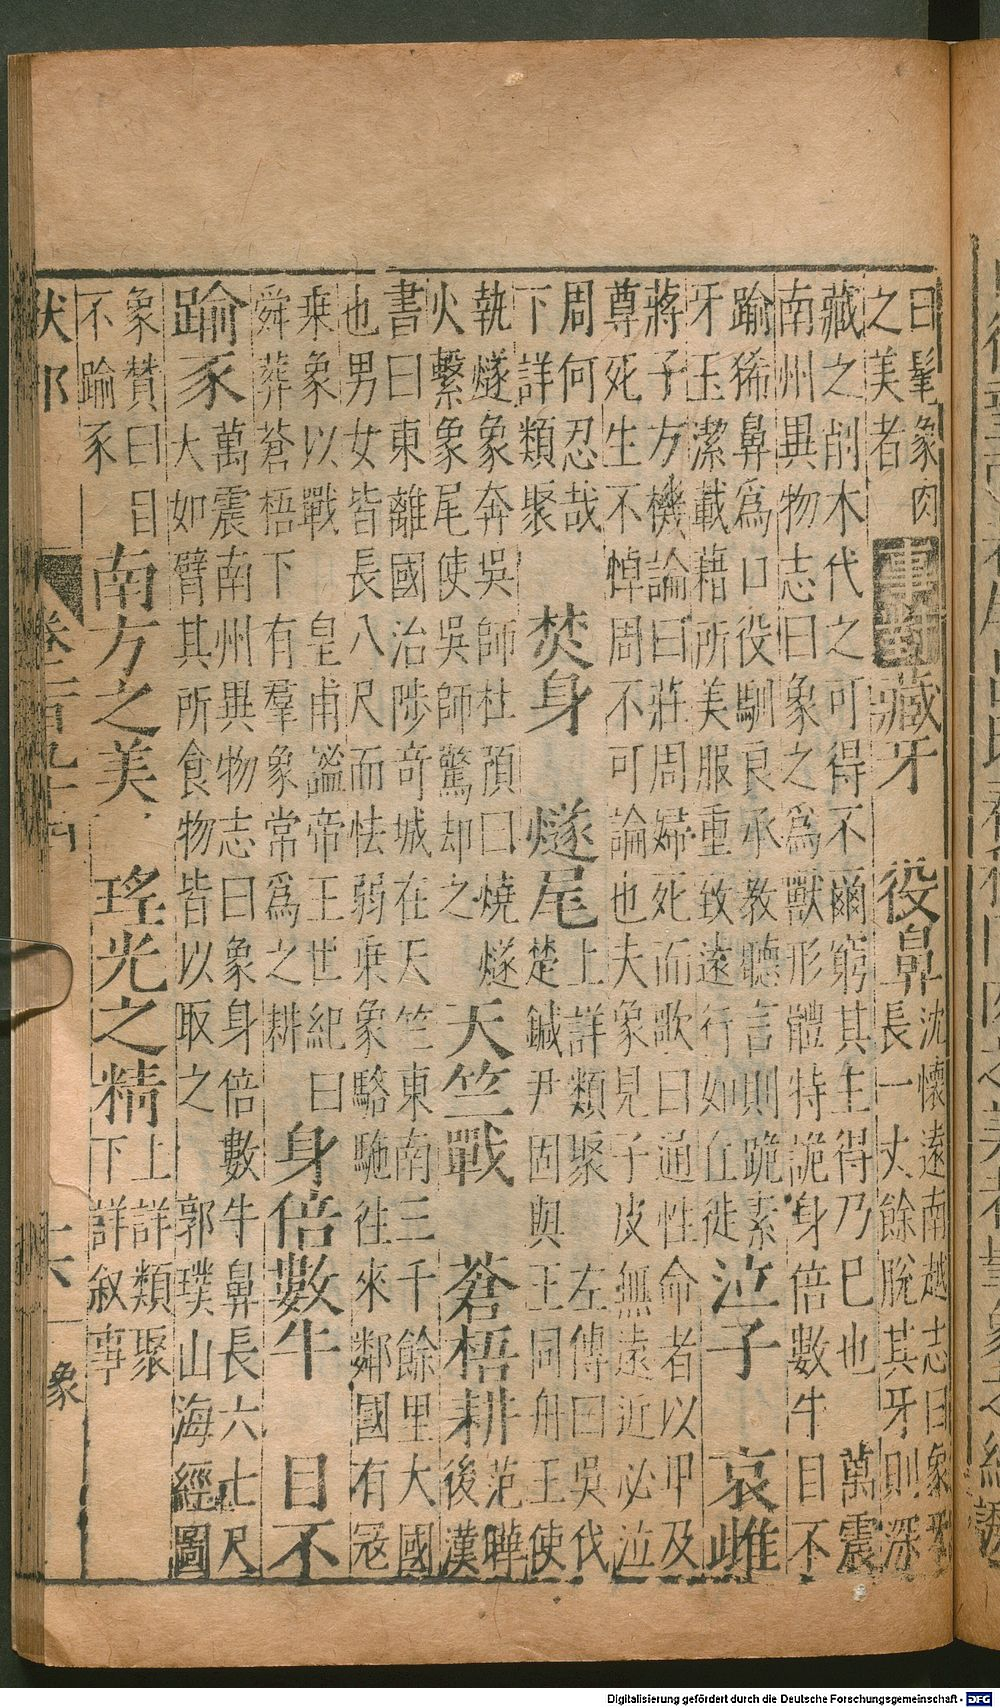 曰髦象肉
之美者
事對 藏牙 役鼻
沈懷遠南越志曰象牙
長一丈餘脫其牙則深
藏之削木代之可得不爾窮其主得乃已也 萬震
南州異物志曰象之為獸形體特詭身倍數牛目不
踰狶鼻為口役馴良承教聽言則跪素
牙玉潔載藉所美服重致遠行如丘徙
泣子 哀雌
蔣子方機論曰莊周婦死而歌曰通性命者以甲及
尊死生不悼周不可論也夫象見子皮無遠近必泣
周何忍哉
下詳類聚
焚身 燧尾
上詳類聚 左傳曰吳伐
楚鍼尹固與王同舟王使
執燧象奔吳師杜預曰燒燧
火繫象尾使吳師驚却之
天竺戰 蒼梧耕
范曄
後漢
書曰東離國治陟竒城在天竺東南三千餘里大國
也男女皆長八尺而怯弱乗象駱駞往來鄰國有冦
乗象以戰 皇甫謐帝王世紀曰
舜葬蒼梧下有羣象常為之耕
身倍數牛 目不
踰豕
萬震南州異物志曰象身倍數牛鼻長六七尺
大如臂其所食物皆以取之 郭璞山海經圖
象贊曰目
不踰豕
南方之美 瑤光之精
上詳類聚
下詳叙事
六
象
Digitalisierung gefördert durch die Deutsche Forschungsgemeinschaft - DFG